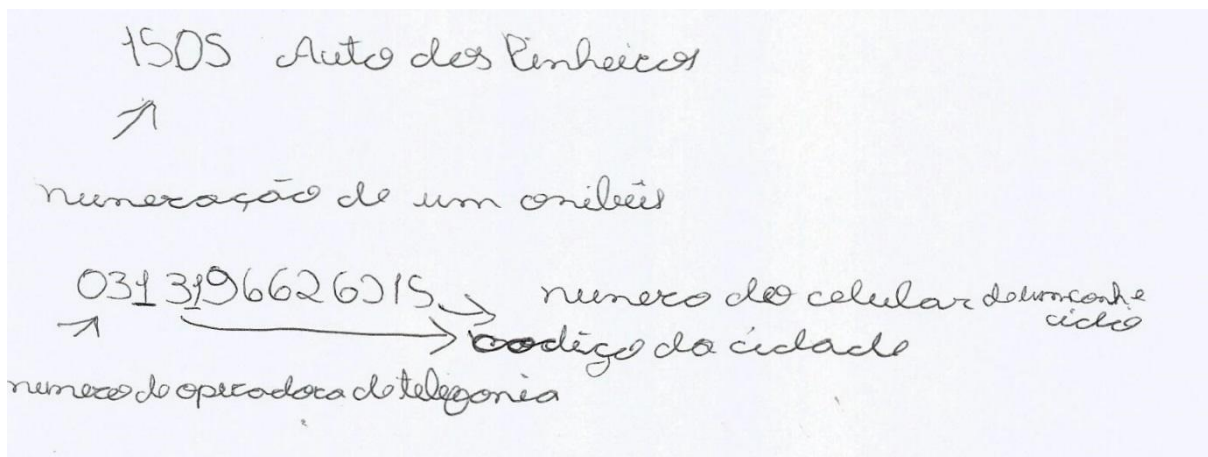 1505 Auto dos Pinheiros
numeração de um onibûs
031 3196626315 numero do celular de um conhe
cido
codigo da cidade
numero de operadora de telefonia